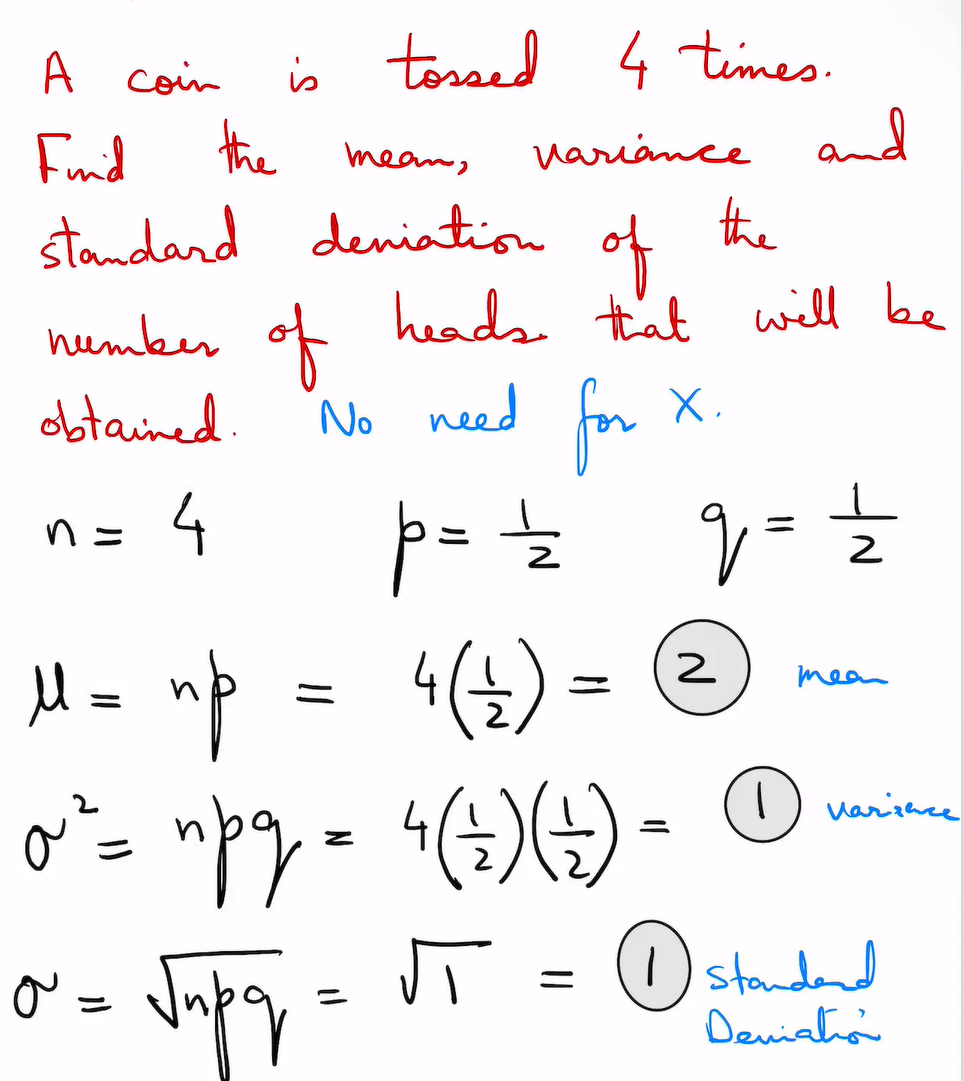 A coin is tossed 4 times.
Find the mean, variance and
standard deviation of the
number of heads that will be
obtained. No need for X.
n = 4 p = 1/2 q = 1/2
μ = np = 4(1/2) = 2 mean
σ² = npq = 4(1/2)(1/2) = 1 variance
σ = √npq = √1 = 1 standard
Deviation